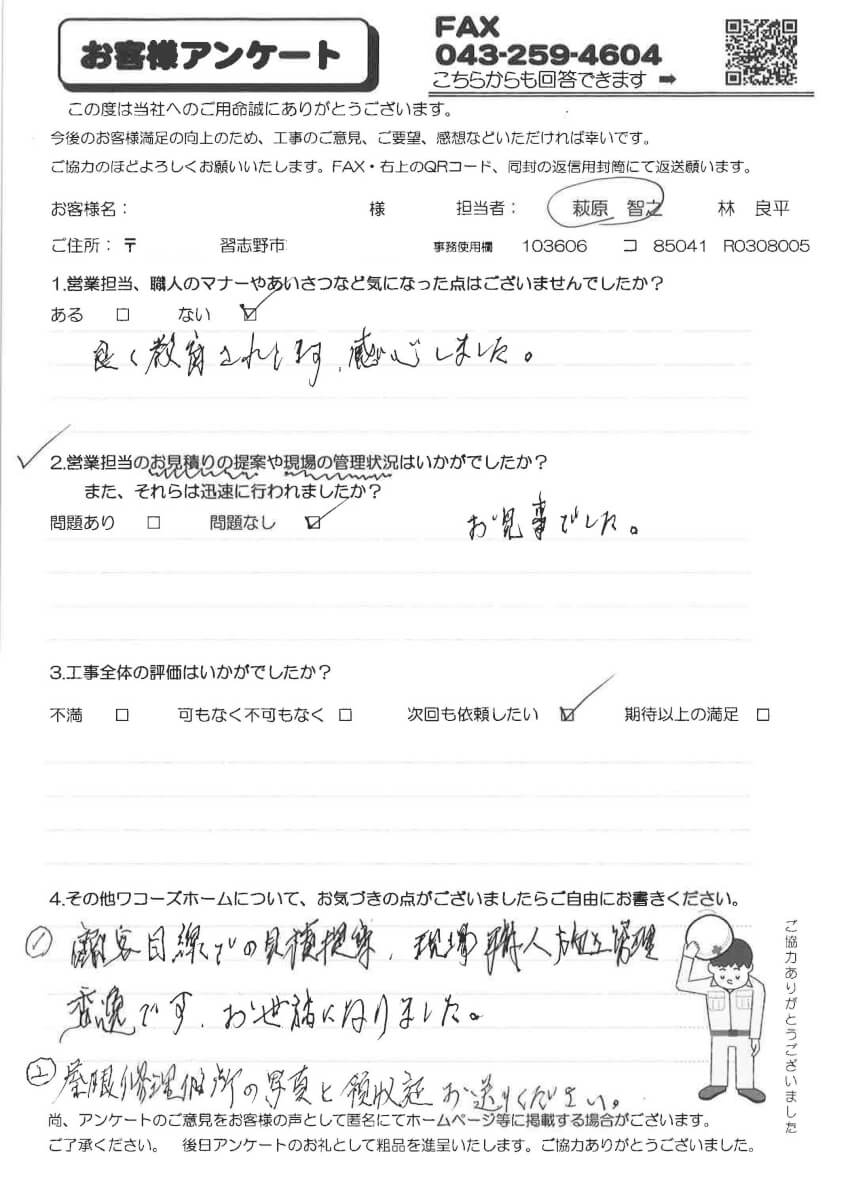 お客様アンケート
FAX
043-259-4604
こちらからも回答できます ➡
この度は当社へのご用命誠にありがとうございます。
今後のお客様満足の向上のため、工事のご意見、ご要望、感想などいただければ幸いです。
ご協力のほどよろしくお願いいたします。FAX・右上のQRコード、同封の返信用封筒にて返送願います。
お客様名： 様 担当者： 萩原 智之 林 良平
ご住所：〒 習志野市 事務使用欄 103606 コ 85041 R0308005
1.営業担当、職人のマナーやあいさつなど気になった点はございませんでしたか？
ある □ ない ☑
良く教育されてます、感心しました。
2.営業担当のお見積りの提案や現場の管理状況はいかがでしたか？
また、それらは迅速に行われましたか？
問題あり □ 問題なし ☑
お見事でした。
3.工事全体の評価はいかがでしたか？
不満 □ 可もなく不可もなく □ 次回も依頼したい ☑ 期待以上の満足 □
4.その他ワコーズホームについて、お気づきの点がございましたらご自由にお書きください。
① 顧客目線での見積提案、現場職人 管理
秀逸です、お世話になりました。
② 屋根修理個所の写真と領収証お送りください。
ご協力ありがとうございました
尚、アンケートのご意見をお客様の声として匿名にてホームページ等に掲載する場合がございます。
ご了承ください。 後日アンケートのお礼として粗品を進呈いたします。ご協力ありがとうございました。